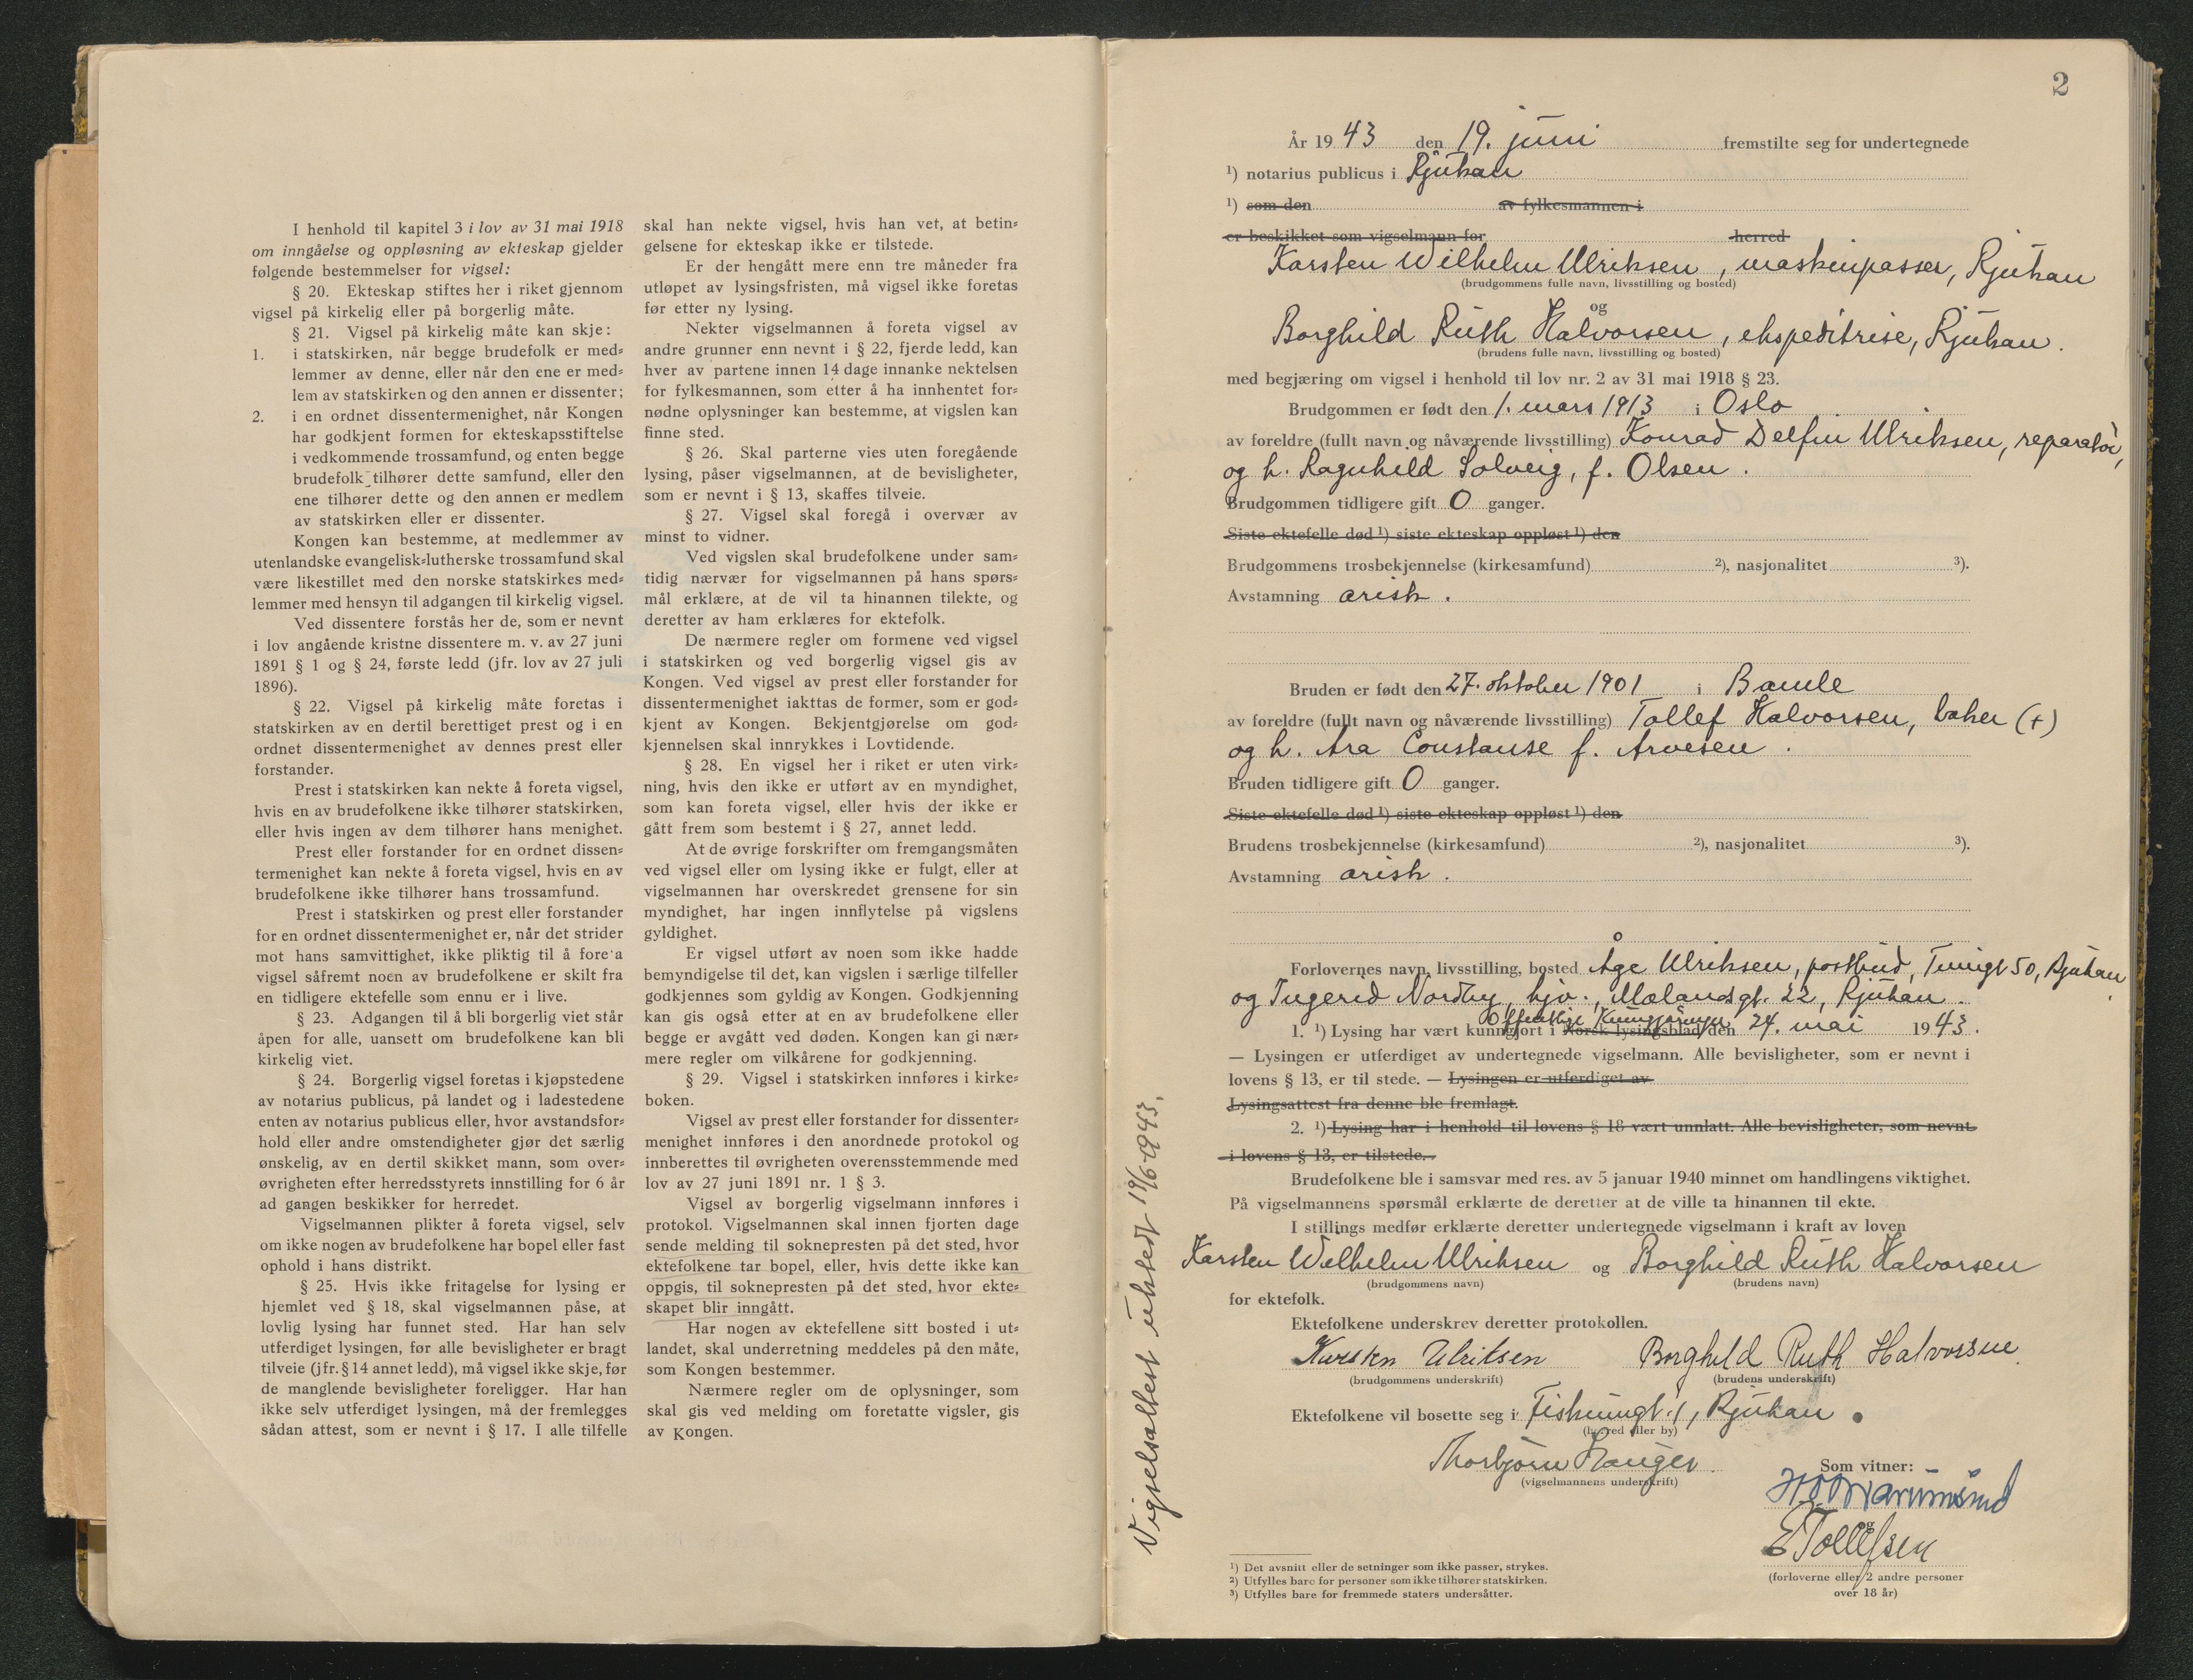 I henhold til kapitel 3 i lov av 31 mai 1918
om inngåelse og oppløsning av ekteskap gjelder
følgende bestemmelser for vigsel:
§ 20. Ekteskap stiftes her i riket gjennom
vigsel på kirkelig eller på borgerlig måte.
§ 21. Vigsel på kirkelig måte kan skje:
1. i statskirken, når begge brudefolk er med=
lemmer av denne, eller når den ene er med=
lem av statskirken og den annen er dissenter;
2. i en ordnet dissentermenighet, når Kongen
har godkjent formen for ekteskapsstiftelse
i vedkommende trossamfund, og enten begge
brudefolk tilhører dette samfund, eller den
ene tilhører dette og den annen er medlem
av statskirken eller er dissenter.
Kongen kan bestemme, at medlemmer av
utenlandske evangelisk=lutherske trossamfund skal
være likestillet med den norske statskirkes med=
lemmer med hensyn til adgangen til kirkelig vigsel.
Ved dissentere forstås her de, som er nevnt
i lov angående kristne dissentere m. v. av 27 juni
1891 § 1 og § 24, første ledd (jfr. lov av 27 juli
1896).
§ 22. Vigsel på kirkelig måte foretas i
statskirken av en dertil berettiget prest og i en
ordnet dissentermenighet av dennes prest eller
forstander.
Prest i statskirken kan nekte å foreta vigsel,
hvis en av brudefolkene ikke tilhører statskirken,
eller hvis ingen av dem tilhører hans menighet.
Prest eller forstander for en ordnet dissen=
termenighet kan nekte å foreta vigsel, hvis en av
brudefolkene ikke tilhører hans trossamfund.
Prest i statskirken og prest eller forstander
for en ordnet dissentermenighet er, når det strider
mot hans samvittighet, ikke pliktig til å fore a
vigsel såfremt noen av brudefolkene er skilt fra
en tidligere ektefelle som ennu er i live.
§ 23. Adgangen til å bli borgerlig viet står
åpen for alle, uansett om brudefolkene kan bli
kirkelig viet.
§ 24. Borgerlig vigsel foretas i kjøpstedene
av notarius publicus, på landet og i ladestedene
enten av notarius publicus eller, hvor avstandsfor=
hold eller andre omstendigheter gjør det særlig
ønskelig, av en dertil skikket mann, som over=
øvrigheten efter herredsstyrets innstilling for 6 år
ad gangen beskikker for herredet.
Vigselmannen plikter å foreta vigsel, selv
om ikke nogen av brudefolkene har bopel eller fast
ophold i hans distrikt.
§ 25. Hvis ikke fritagelse for lysing er
hjemlet ved § 18, skal vigselmannen påse, at
lovlig lysing har funnet sted. Har han selv
utferdiget lysingen, før alle bevisligheter er bragt
tilveie (jfr. § 14 annet ledd), må vigsel ikke skje, før
de manglende bevisligheter foreligger. Har han
ikke selv utferdiget lysingen, må der fremlegges
sådan attest, som er nevnt i § 17. I alle tilfelle
skal han nekte vigsel, hvis han vet, at betin=
gelsene for ekteskap ikke er tilstede.
Er der hengått mere enn tre måneder fra
utløpet av lysingsfristen, må vigsel ikke foretas
før etter ny lysing.
Nekter vigselmannen å foreta vigsel av
andre grunner enn nevnt i § 22, fjerde ledd, kan
hver av partene innen 14 dage innanke nektelsen
for fylkesmannen, som etter å ha innhentet for=
nødne oplysninger kan bestemme, at vigslen kan
finne sted.
§ 26. Skal parterne vies uten foregående
lysing, påser vigselmannen, at de bevisligheter,
som er nevnt i § 13, skaffes tilveie.
§ 27. Vigsel skal foregå i overvær av
minst to vidner.
Ved vigslen skal brudefolkene under sam=
tidig nærvær for vigselmannen på hans spørs=
mål erklære, at de vil ta hinannen tilekte, og
deretter av ham erklæres for ektefolk.
De nærmere regler om formene ved vigsel
i statskirken og ved borgerlig vigsel gis av
Kongen. Ved vigsel av prest eller forstander for
dissentermenighet iakttas de former, som er god=
kjent av Kongen. Bekjentgjørelse om god=
kjennelsen skal innrykkes i Lovtidende.
§ 28. En vigsel her i riket er uten virk=
ning, hvis den ikke er utført av en myndighet,
som kan foreta vigsel, eller hvis der ikke er
gått frem som bestemt i § 27, annet ledd.
At de øvrige forskrifter om fremgangsmåten
ved vigsel eller om lysing ikke er fulgt, eller at
vigselmannen har overskredet grensene for sin
myndighet, har ingen innflytelse på vigslens
gyldighet.
Er vigsel utført av noen som ikke hadde
bemyndigelse til det, kan vigslen i særlige tilfeller
godkjennes som gyldig av Kongen. Godkjenning
kan gis også etter at en av brudefolkene eller
begge er avgått ved døden. Kongen kan gi nær=
mere regler om vilkårene for godkjenning.
§ 29. Vigsel i statskirken innføres i kirke=
boken.
Vigsel av prest eller forstander for dissenter=
menighet innføres i den anordnede protokol og
innberettes til øvrigheten overensstemmende med
lov av 27 juni 1891 nr. 1 § 3.
Vigsel av borgerlig vigselmann innføres i
protokol. Vigselmannen skal innen fjorten dage
sende melding til soknepresten på det sted, hvor
ektefolkene tar bopel, eller, hvis dette ikke kan
oppgis, til soknepresten på det sted, hvor ekte=
skapet blir inngått.
Har nogen av ektefellene sitt bosted i ut=
landet, skal underretning meddeles på den måte,
som Kongen bestemmer.
Nærmere regler om de oplysninger, som
skal gis ved melding om foretatte vigsler, gis
av Kongen.
2
År 1943 den 19. juni fremstilte seg for undertegnede
1) notarius publicus i Rjukan
1) som den av fylkesmannen i
er beskikket som vigselmann for herred
Karsten Wilhelm Ulriksen, maskinpasser, Rjukan
(brudgommens fulle navn, livsstilling og bosted)
og
Borghild Ruth Halvorsen, ekspeditrise, Rjukan.
(brudens fulle navn, livsstilling og bosted)
med begjæring om vigsel i henhold til lov nr. 2 av 31 mai 1918 § 23.
Brudgommen er født den 1. mars 1913 i Oslo
av foreldre (fullt navn og nåværende livsstilling) Konrad Delfin Ulriksen, reparatør,
og h. Ragnhild Solveig, f. Olsen.
Brudgommen tidligere gift 0 ganger.
Siste ektefelle død 1) siste ekteskap oppløst 1) den
Brudgommens trosbekjennelse (kirkesamfund) 2), nasjonalitet 3).
Avstamning arisk.
Bruden er født den 27. oktober 1901 i Bamle
av foreldre (fullt navn og nåværende livsstilling) Tollef Halvorsen, baker (+)
og h. Ara Constanse f. Arvesen.
Bruden tidligere gift 0 ganger.
Siste ektefelle død 1) siste ekteskap oppløst 1) den
Brudens trosbekjennelse (kirkesamfund) 2), nasjonalitet 3).
Avstamning arisk.
Forlovernes navn, livsstilling, bosted Åge Ulriksen, postbud, 50, Rjukan
og Ingerid Nordby, hjv., Mælandsgt. 22, Rjukan.
Offentlige Kunngjøringer
1. 1) Lysing har vært kunngjort i Norsk lysingsblad den 24. mai 1943.
— Lysingen er utferdiget av undertegnede vigselmann. Alle bevisligheter, som er nevnt i
lovens § 13, er til stede. — Lysingen er utferdiget av
Lysingsattest fra denne ble fremlagt.
2. 1) Lysing har i henhold til lovens § 18 vært unnlatt. Alle bevisligheter, som nevnt
i lovens § 13, er tilstede.
Brudefolkene ble i samsvar med res. av 5 januar 1940 minnet om handlingens viktighet.
På vigselmannens spørsmål erklærte de deretter at de ville ta hinannen til ekte.
I stillings medfør erklærte deretter undertegnede vigselmann i kraft av loven
Karsten Wilhelm Ulriksen og Borghild Ruth Halvorsen
(brudgommens navn) (brudens navn)
for ektefolk.
Ektefolkene underskrev deretter protokollen.
Karsten Ulriksen Borghild Ruth Halvorsen
(brudgommens underskrift) (brudens underskrift)
Ektefolkene vil bosette seg i 1, Rjukan
(herred eller by)
Thorbjørn Hauger
(vigselmannens underskrift)
Som vitner:
og
E Tollefsen
(forloverne eller 2 andre personer
over 18 år)
1) Det avsnitt eller de setninger som ikke passer, strykes.
2) Utfylles bare for personer som ikke tilhører statskirken.
3) Utfylles bare for fremmede staters undersåtter.
Vigselsattest utstedt 19/6-1943.